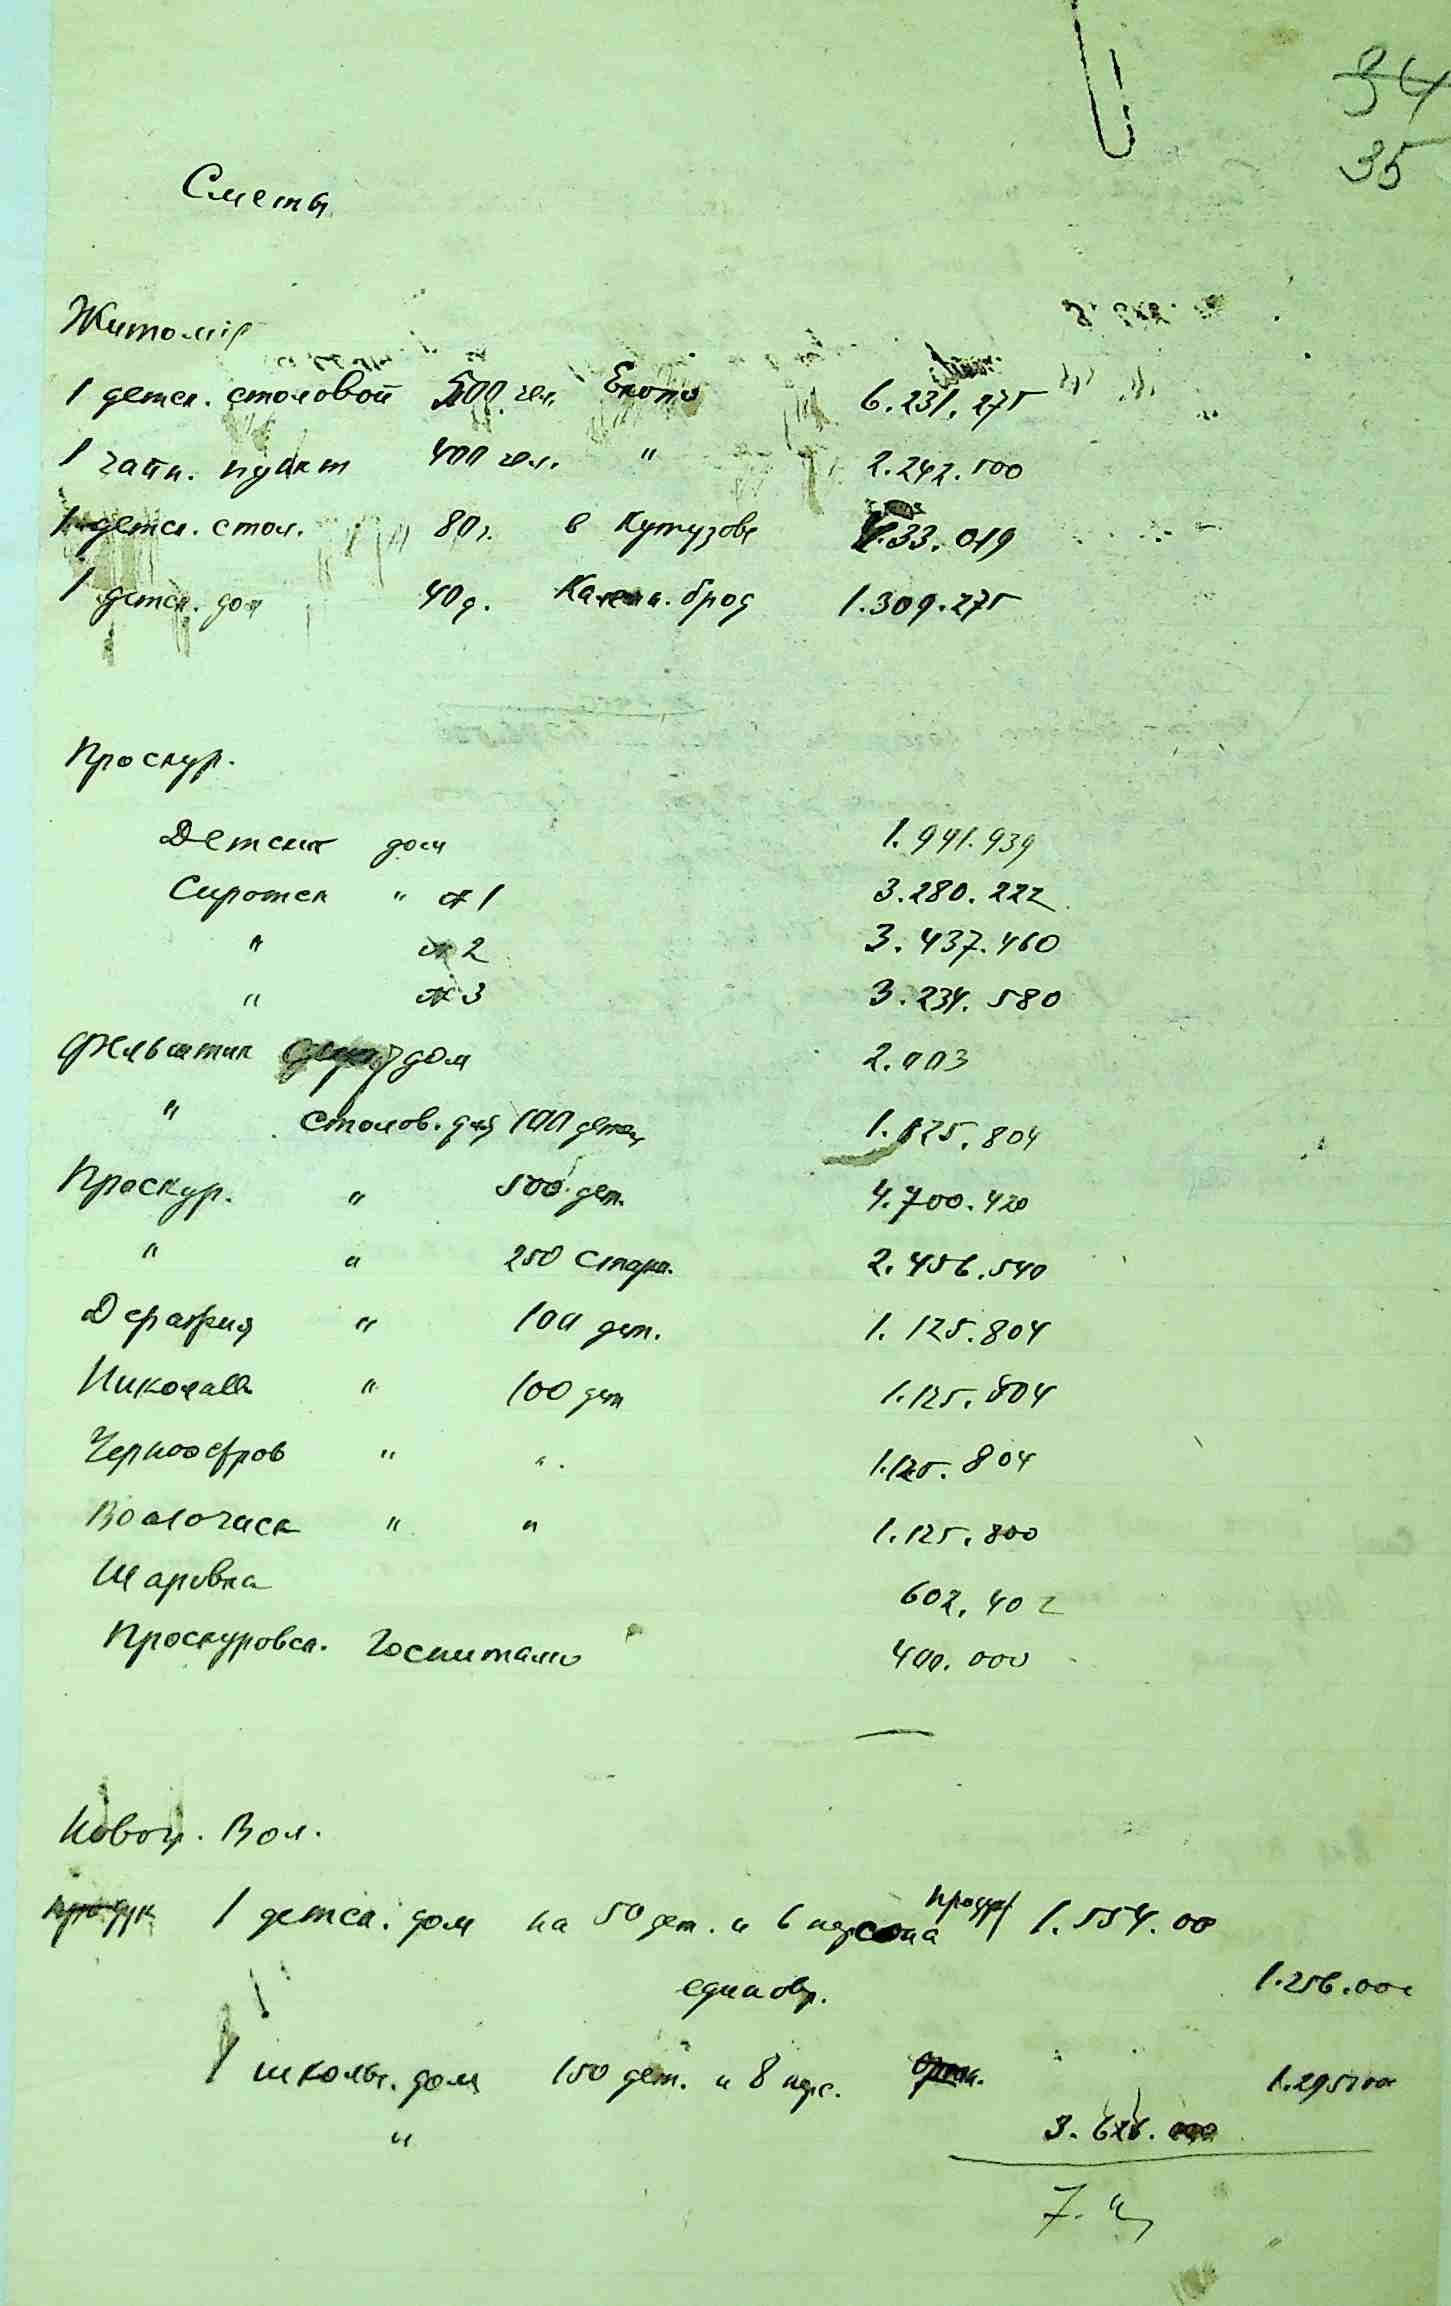 34
35
Сметы
Житомір
1 детск. столовой 500 чел. 6.231.275
1 чайн. пункт 400 чел. " 2.242.500
1 детск. стол. 80 в Кутузове 33.019
1 детск. дом 40 д. Камен. брод 1.309.275
Проскур.
Детский дом 1.991.939
Сиротск " № 1 3.280.222
" № 2 3.437.460
" № 3 3.234.580
Фельштин дом 2.003
" столов. для 100 детей 1.125.804
Проскур. " 500 дет. 4.700.420
" " 250 стар. 2.456.540
Деражня " 100 дет. 1.125.804
Николаев " 100 дет 1.125.804
Черноостров " " 1.125.804
Волочиск " " 1.125.800
Шаровка 602.402
Проскуровск. Госпиталю 400.000
Новогр. Вол.
продук 1 детск. дом на 50 дет. и 6 персона продук 1.554.00
единовр. 1.256.000
1 школьн. дом 150 дет. и 8 перс. Орган. 1.295000
" 3.626.000
7.